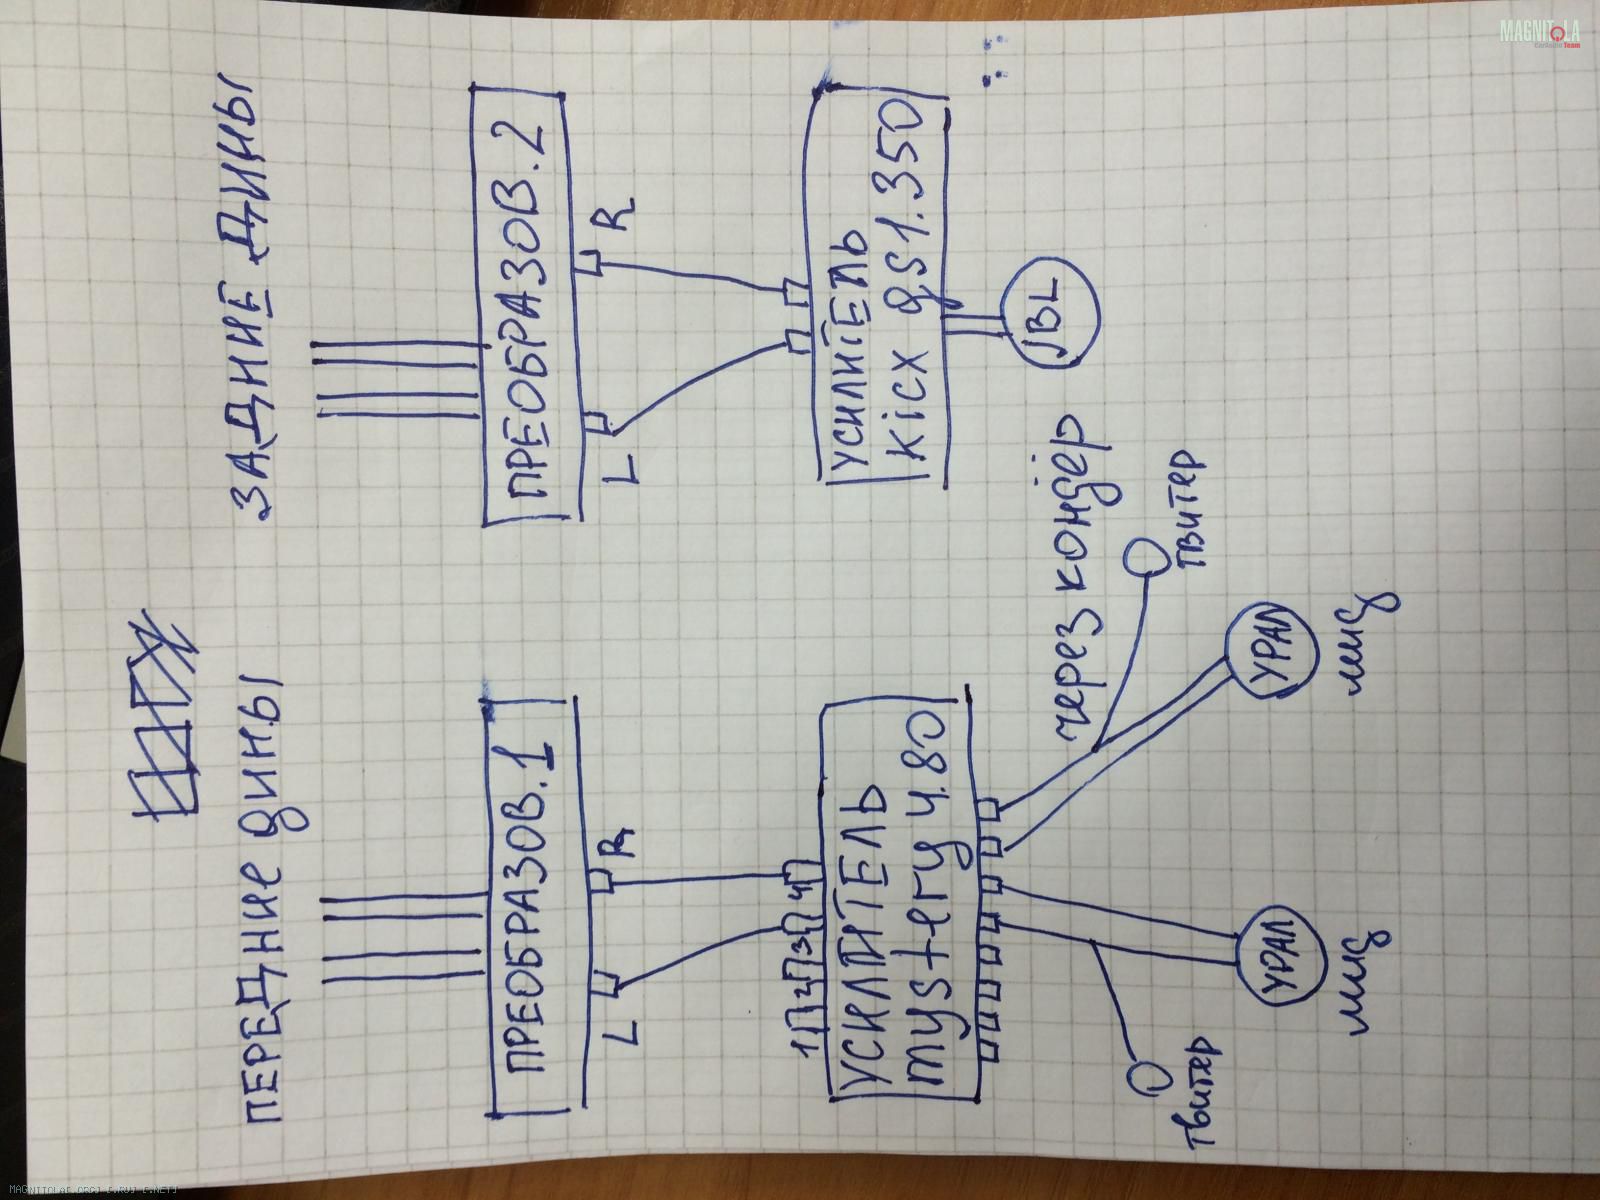 ПЕРЕДНИЕ дины
ПРЕОБРАЗОВ.1
L
R
1 2 3 4
УСИЛИТЕЛЬ
mystery 4.80
через кондёр
твитер
твитер
УРАЛ
УРАЛ
мид
мид
ЗАДНИЕ ДИНЫ
ПРЕОБРАЗОВ.2
L
R
УСИЛИТЕЛЬ
Kicx qs1.350
JBL
MAGNITOLA
CarAudio Team